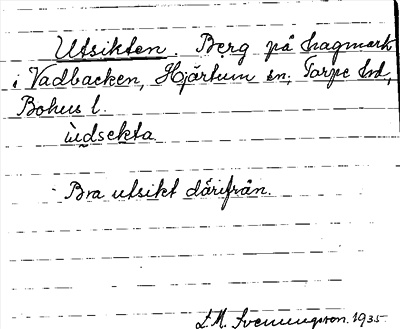 Utsikten. Berg på hagmark
i Vadbacken, Hjärtum sn, Torpe hd,
Bohus l.
ùdsekta
Bra utsikt därifrån.
L. M. Svenungsson 1935